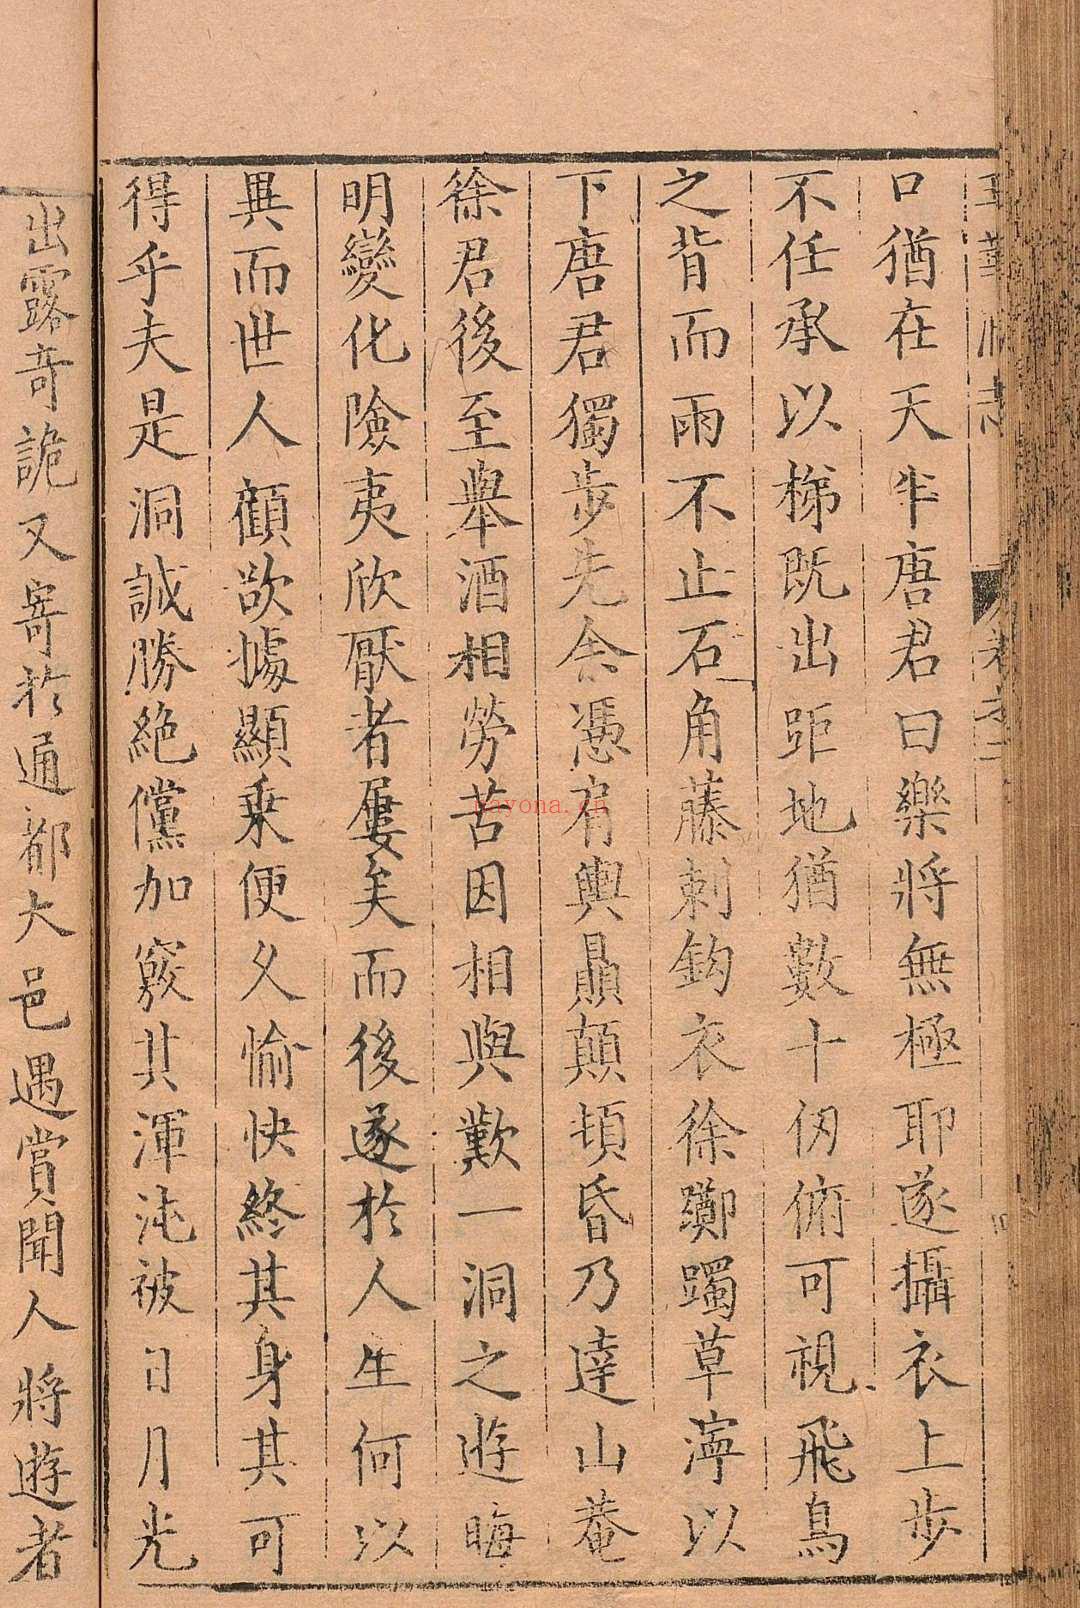 口猶在天半唐君曰樂將無極耶遂攝衣上步
不任承以梯既出距地猶數十仞俯可視飛鳥
之背而雨不止石角藤刺鈎衣徐躑躅草濘以
下唐君獨步先舍憑肩輿贔顛頓昏乃達山菴
徐君後至舉酒相勞苦因相與歎一洞之遊晦
明變化險夷欣厭者屢矣而後遂於人生何以
異而世人顧欲據顯乗便久愉快終其身其可
得乎夫是洞誠勝絶儻加竅其渾沌被日月光
出露奇詭又寄於通都大邑遇賞聞人將遊者
bayona.cn